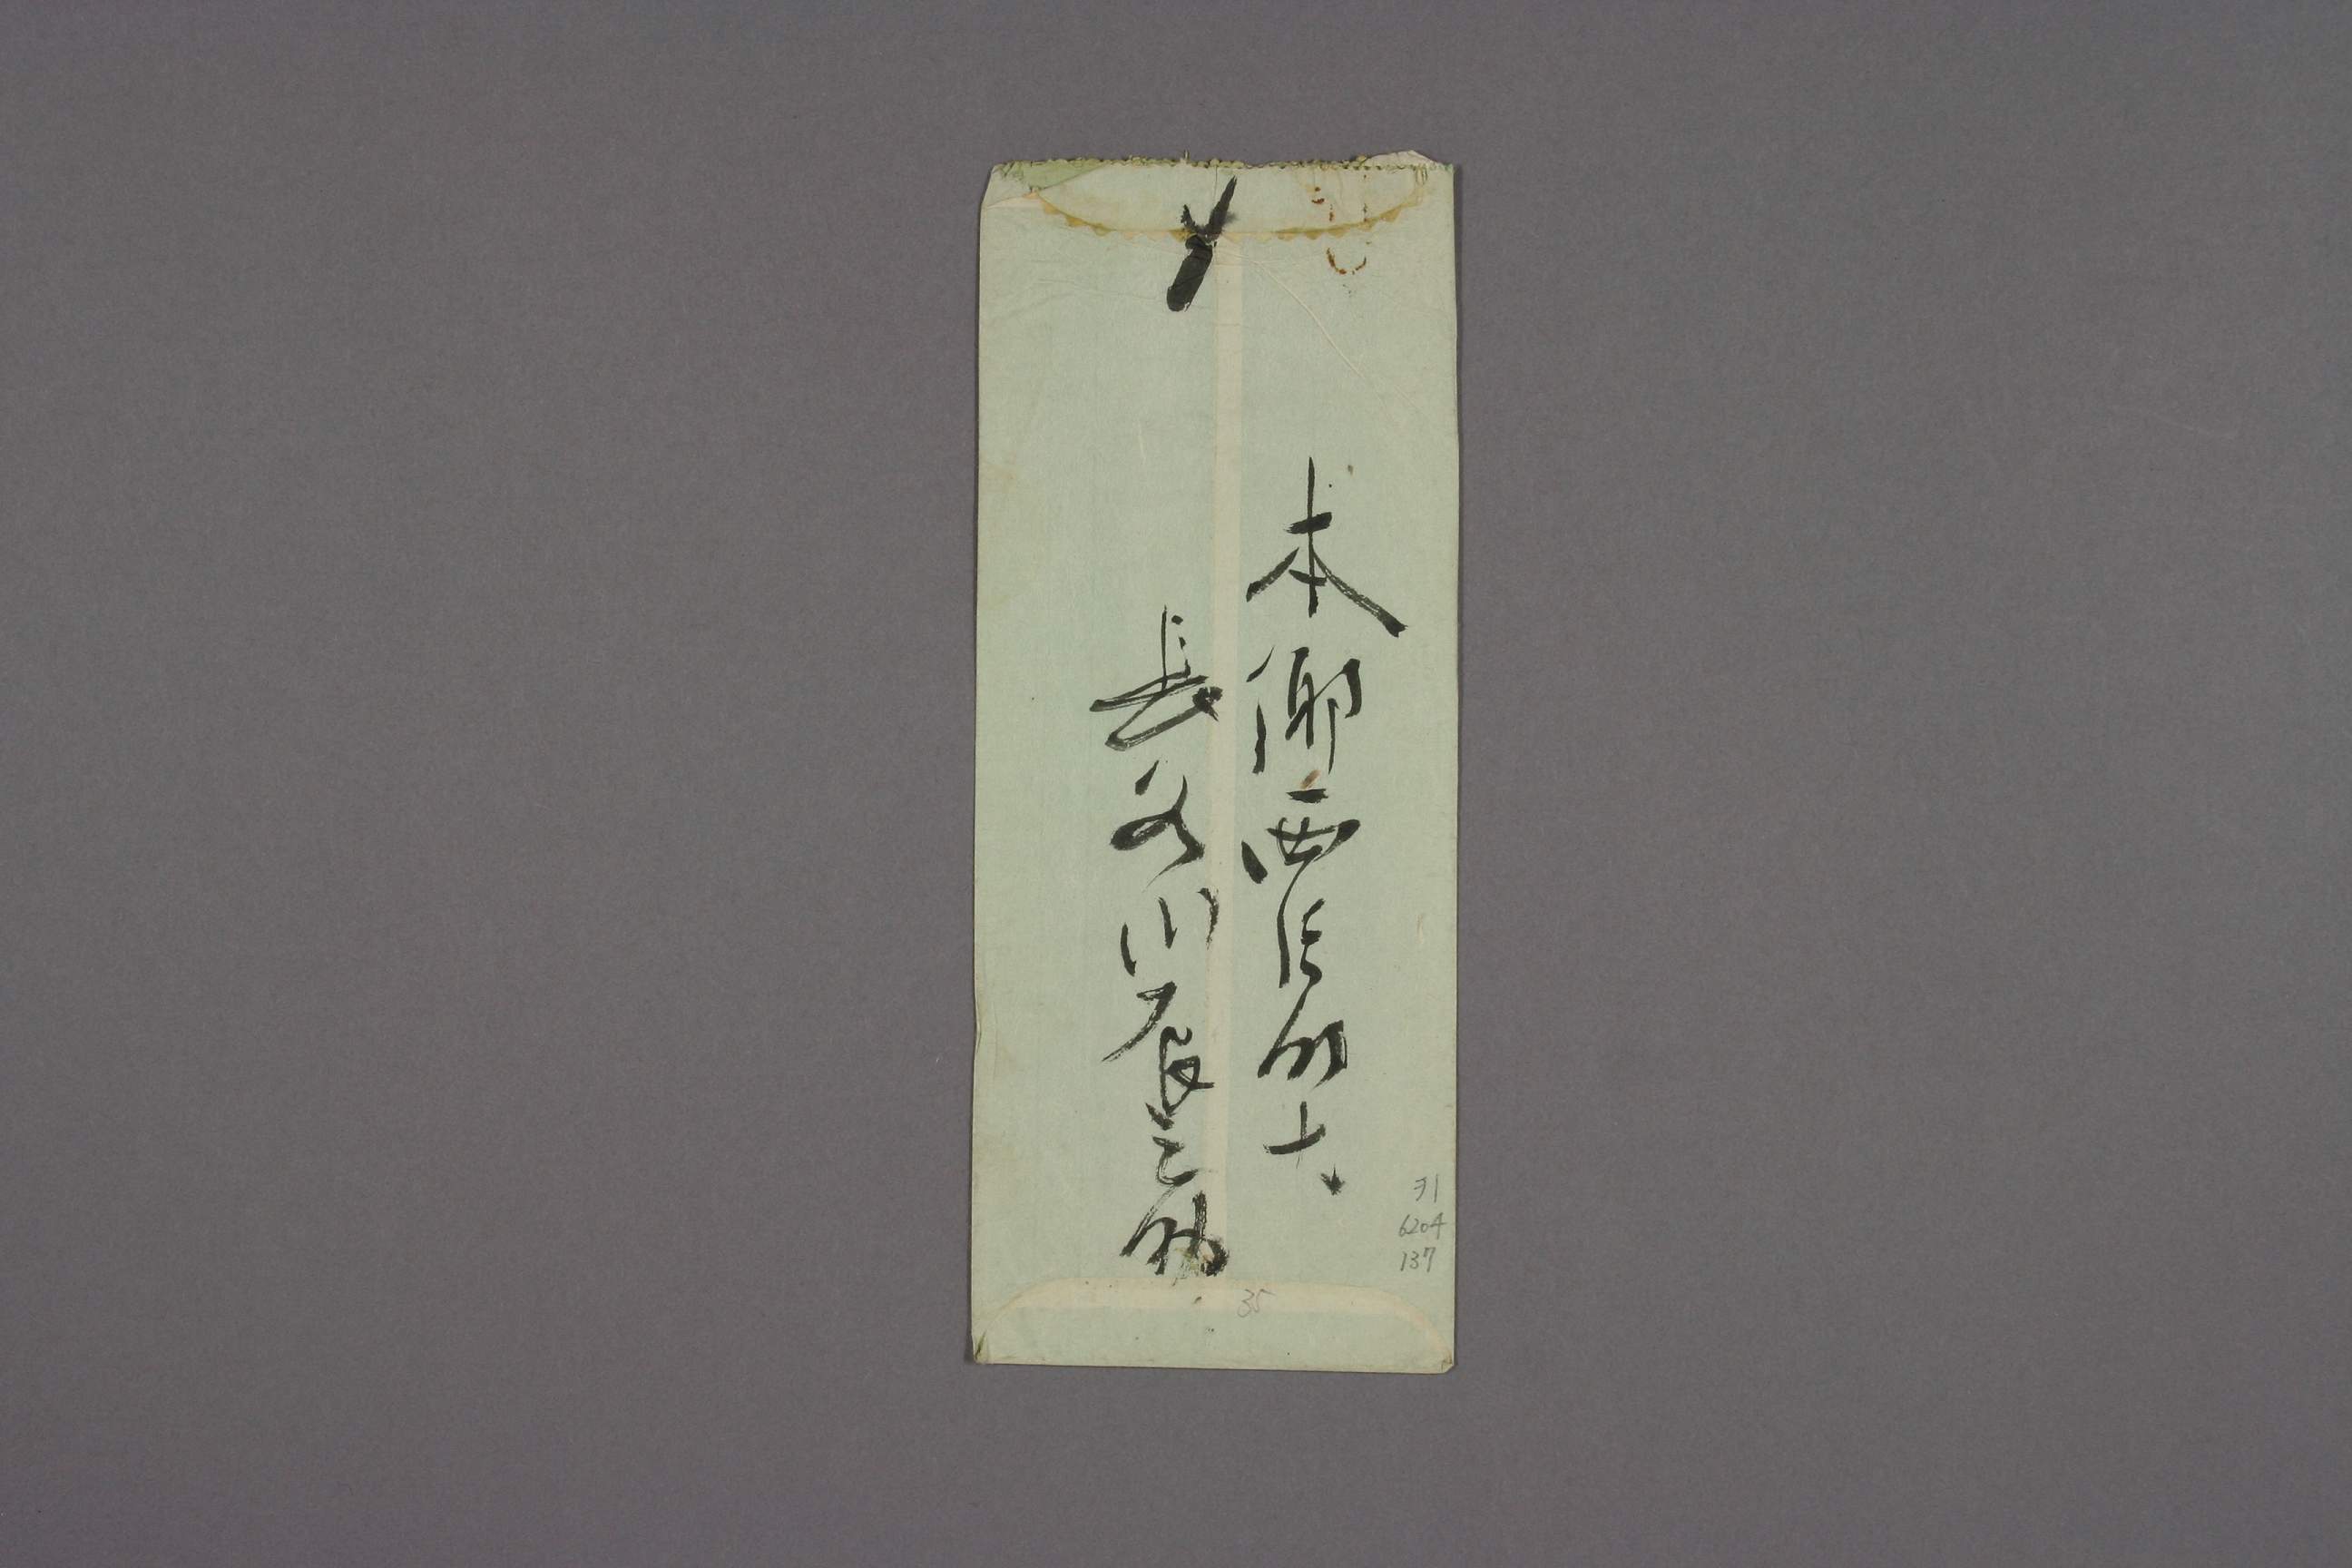 〆
本郷西片町十、
長谷川辰之助
ヲ1
6204
137
35